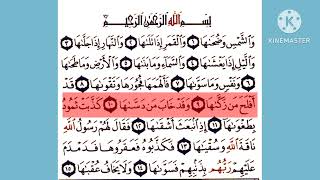 بِسْمِ اللَّهِ الرَّحْمَٰنِ الرَّحِيمِ
وَالشَّمْسِ وَضُحَىٰهَا ١ وَالْقَمَرِ إِذَا تَلَىٰهَا ٢ وَالنَّهَارِ إِذَا جَلَّىٰهَا ٣
وَالَّيْلِ إِذَا يَغْشَىٰهَا ٤ وَالسَّمَاءِ وَمَا بَنَىٰهَا ٥ وَالْأَرْضِ وَمَا طَحَىٰهَا ٦
وَنَفْسٍ وَمَا سَوَّىٰهَا ٧ فَأَلْهَمَهَا فُجُورَهَا وَتَقْوَىٰهَا ٨ قَدْ
أَفْلَحَ مَن زَكَّىٰهَا ٩ وَقَدْ خَابَ مَن دَسَّىٰهَا ١٠ كَذَّبَتْ ثَمُودُ
بِطَغْوَىٰهَا ١١ إِذِ انبَعَثَ أَشْقَىٰهَا ١٢ فَقَالَ لَهُمْ رَسُولُ اللَّهِ
نَاقَةَ اللَّهِ وَسُقْيَٰهَا ١٣ فَكَذَّبُوهُ فَعَقَرُوهَا فَدَمْدَمَ
عَلَيْهِمْ رَبُّهُم بِذَنبِهِمْ فَسَوَّىٰهَا ١٤ وَلَا يَخَافُ عُقْبَٰهَا ١٥
MADE WITH
KINEMASTER